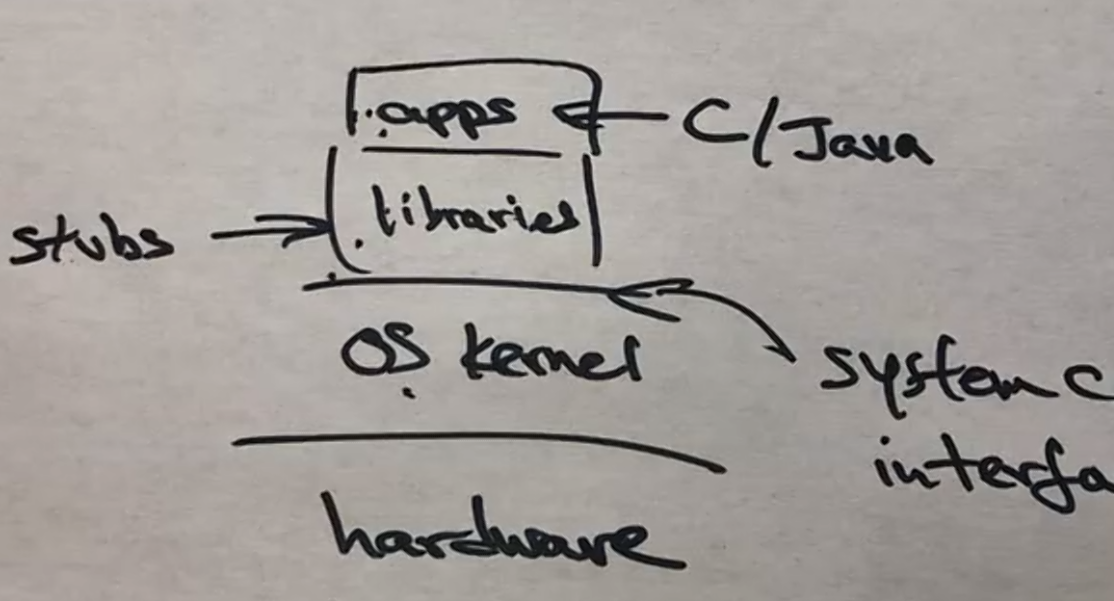 apps
C/Java
libraries
stubs
OS kernel
system c
interfa
hardware